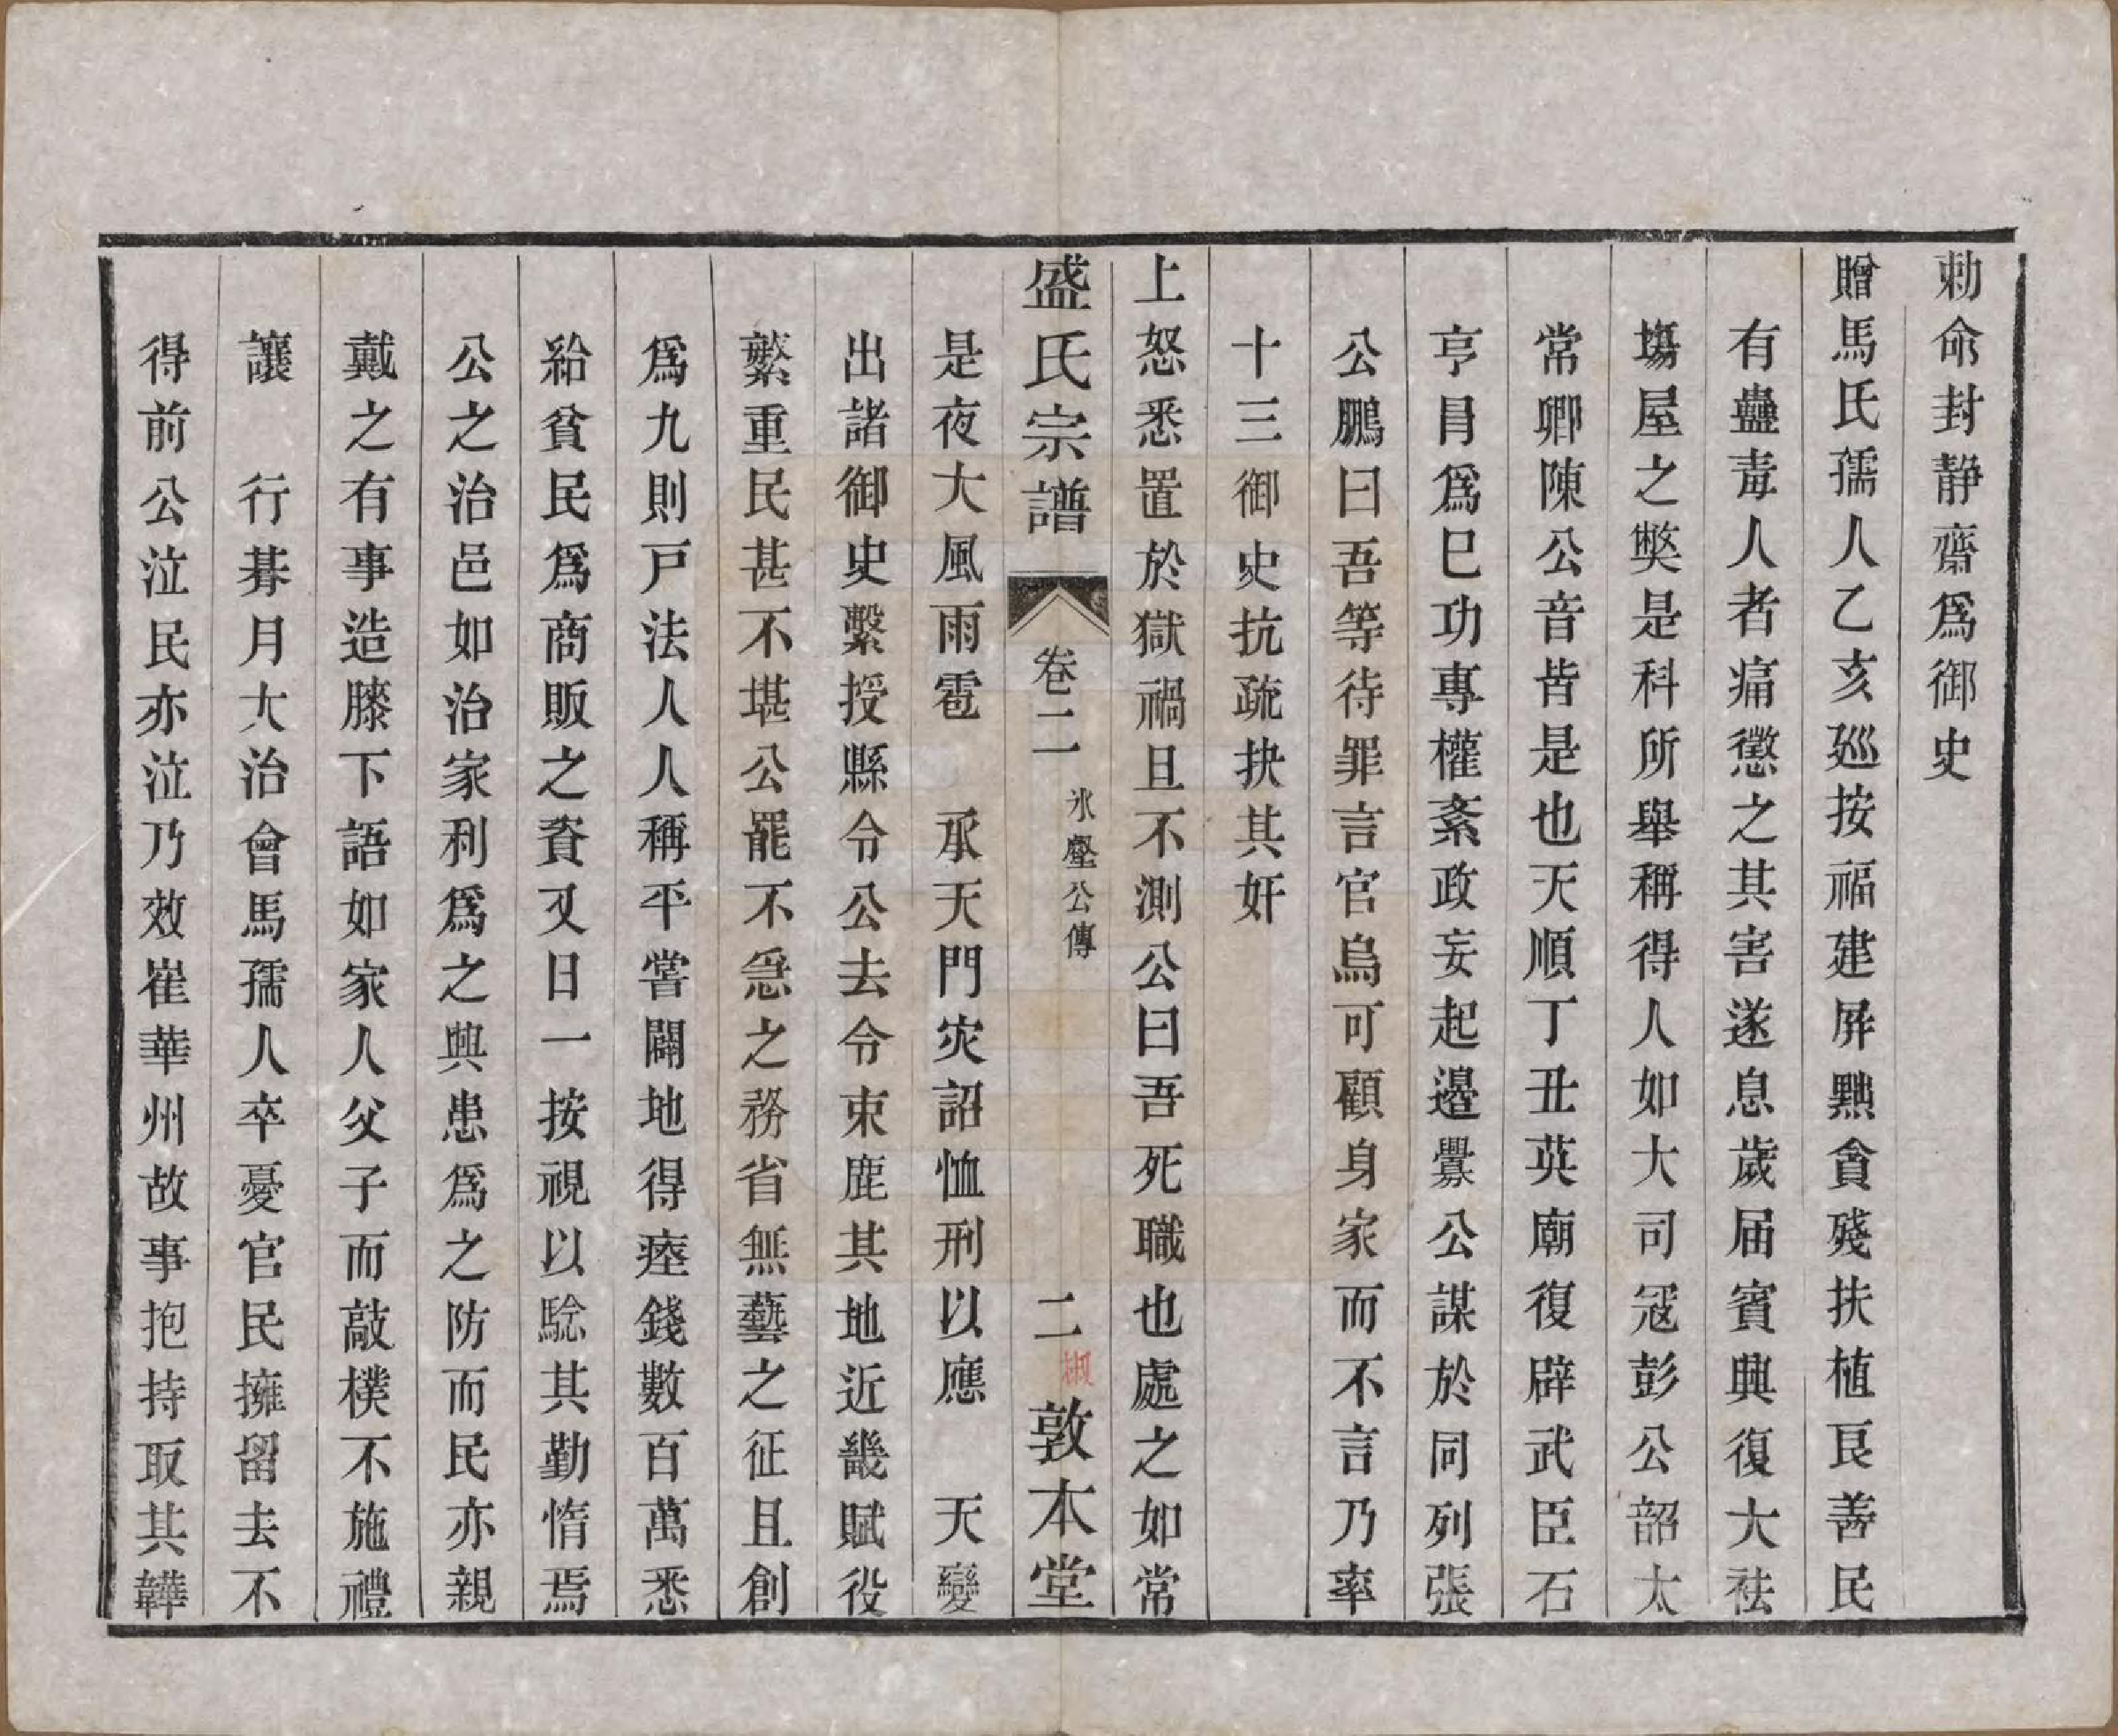 勅命封静齋爲御史
贈馬氏孺人乙亥廵按福建屏黜貪殘扶植良善民
有蠱毒人者痛懲之其害遂息歲届賓興復大祛
塲屋之獘是科所舉稱得人如大司冦彭公韶太
常卿陳公音皆是也天順丁丑英廟復辟武臣石
亨冐爲巳功專權紊政妄起邉釁公謀於同列張
公鵬曰吾等待罪言官烏可顧身家而不言乃率
十三御史抗疏抉其奸
上怒悉置於獄禍且不測公曰吾死職也處之如常
盛氏宗譜 卷二 氷壑公傳 二 敦本堂
是夜大風雨雹 承天門灾詔恤刑以應 天變
出諸御史繫授縣令公去令束鹿其地近畿賦役
繁重民甚不堪公罷不急之務省無藝之征且創
爲九則戸法人人稱平嘗闢地得瘞錢數百萬悉
給貧民爲商販之資又日一按視以騐其勤惰焉
公之治邑如治家利爲之興患爲之防而民亦親
戴之有事造膝下語如家人父子而敲樸不施禮
讓 行朞月大治會馬孺人卒憂官民擁留去不
得前公泣民亦泣乃效崔華州故事抱持取其鞾